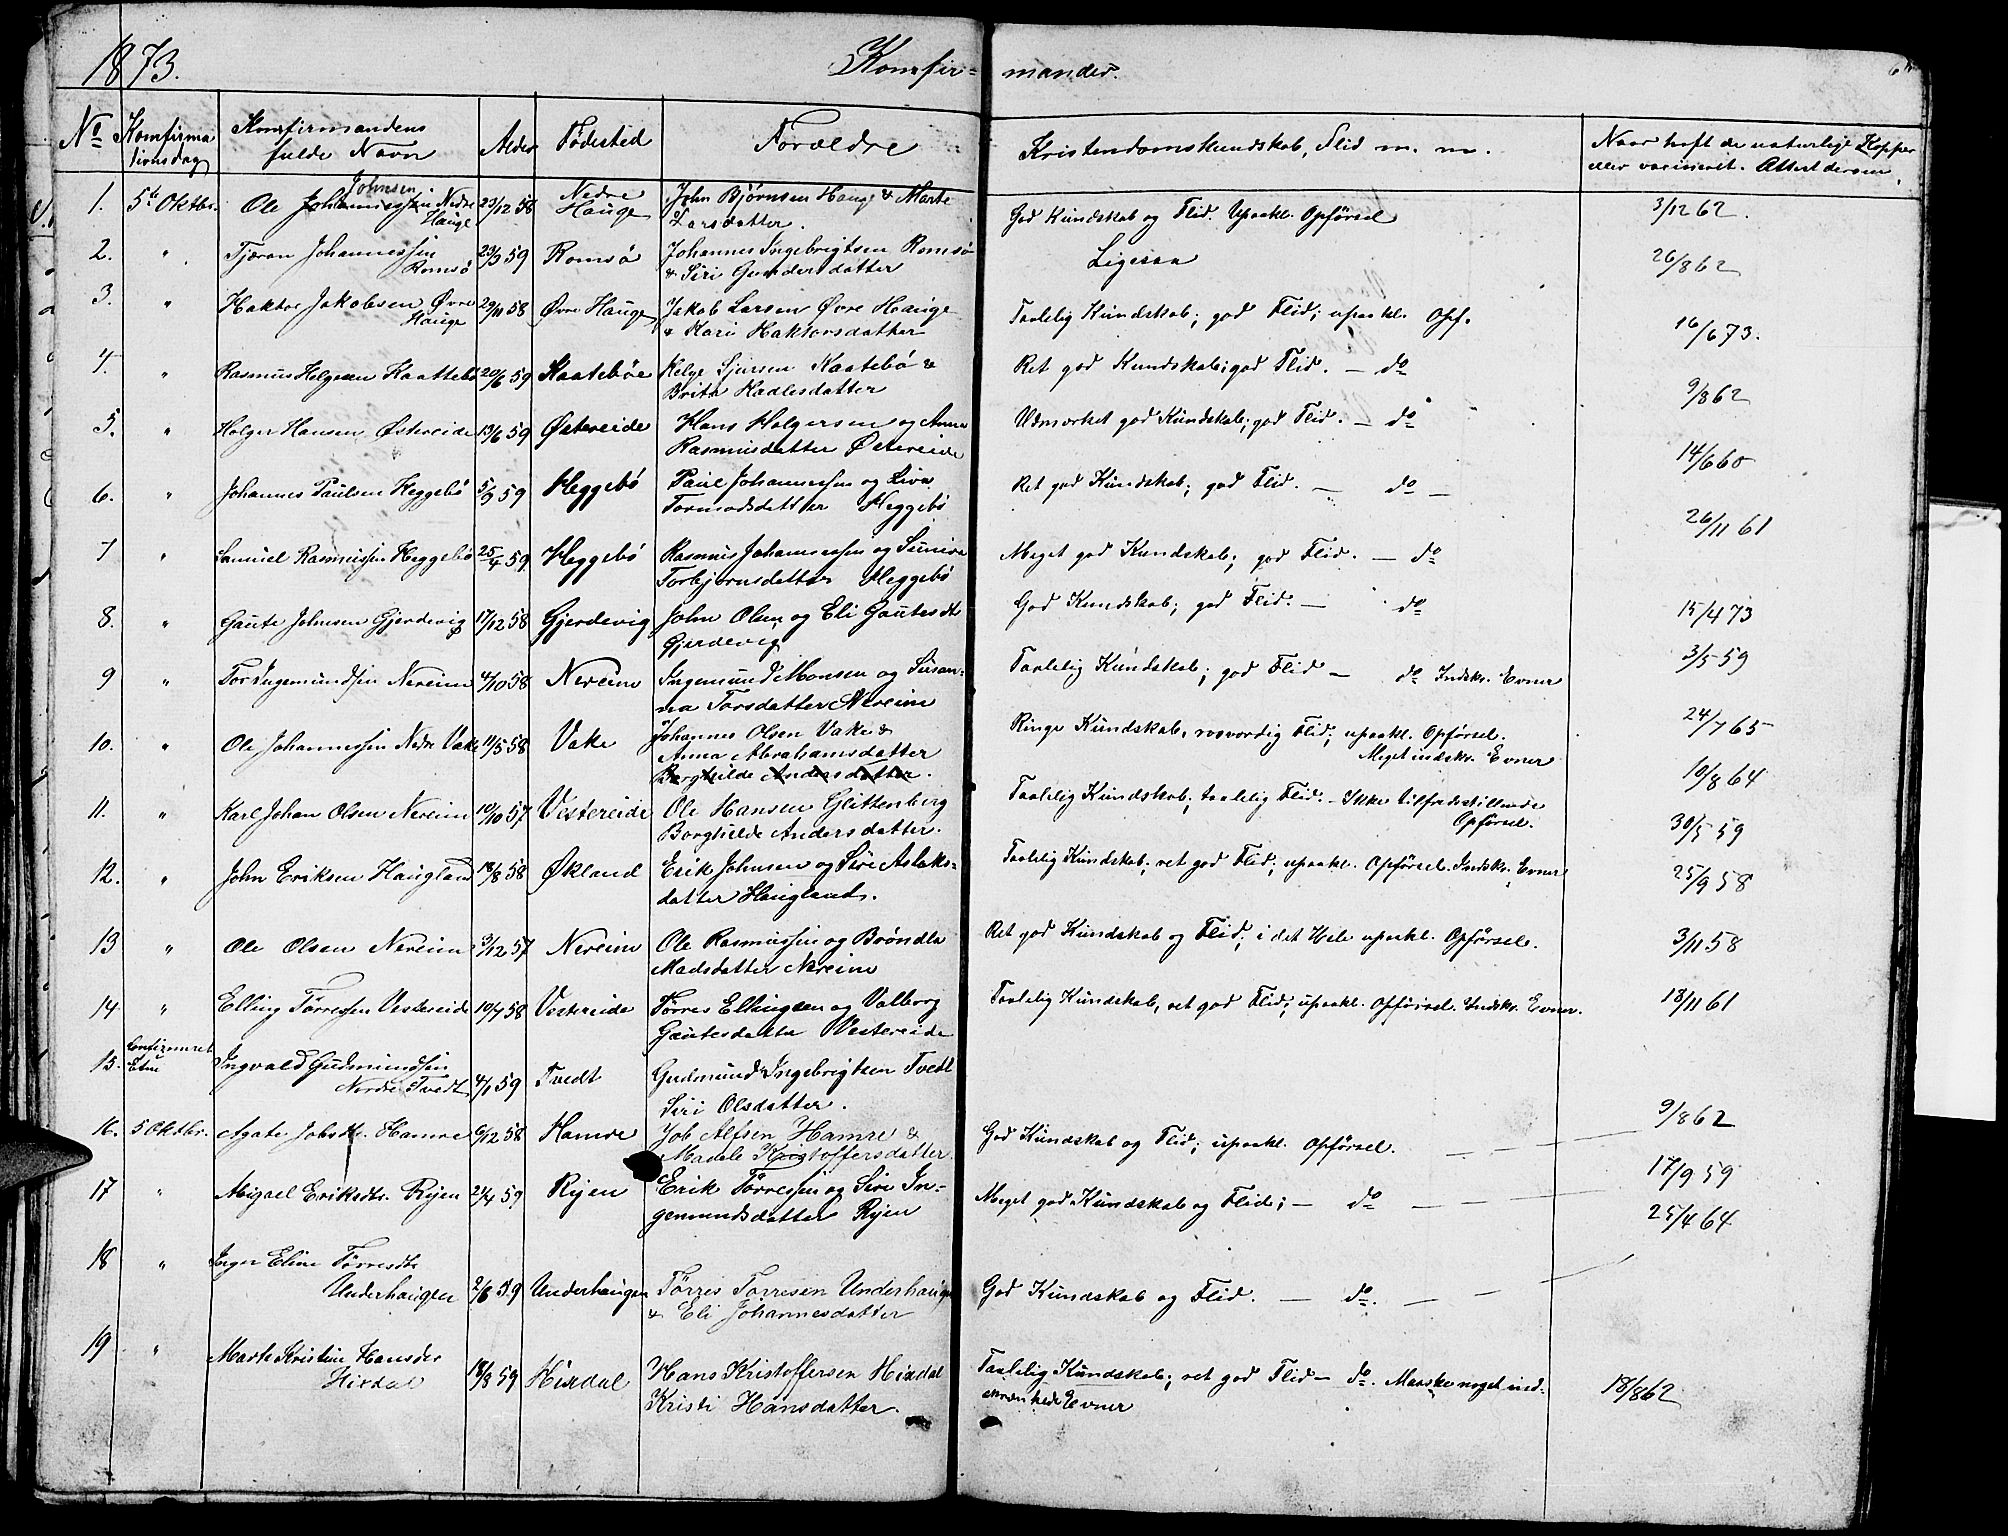 1873.
Konfir-
mander.
No
Konfirma
tionsdag
Konfirmandens
fulde Navn
Alder
Fødested
Forældre
Kristendomskundskab, Flid m. m.
Naar haft de naturlige Kopper
eller vaccineret. Attest derom.
1. 5te Oktbr. Ole Johannessen Johnsen Nedre Hauge 23/12 58 Nedre Hauge John Bjørnsen Hauge & Marte
Larsdatter. God Kundskab og Flid. Upaakl. Opførsel 3/12 62.
2. " Tjæran Johannessen Romsø 23/9 59 Romsø Johannes Ingebrigtsen Romsø
& Siri Gundersdatter Ligesaa 26/8 62
3. " Haktor Jakobsen Øvre Hauge 29/11 58 Øvre Hauge Jakob Larsen Øvre Hauge
& Kari Haktorsdatter Taalelig Kundskab; god Flid; upaakl. Opf. 16/6 73.
4. " Rasmus Helgesen Kaattebø 20/6 59 Kaatebøe Helge Sjursen Kaatebø &
Brita Hadlesdatter Ret god Kundskab; god Flid. — do 9/8 62
5. " Holger Hansen Østereide 13/6 59 Østereide Hans Holgersen og Anna
Rasmusdatter Østereide Udmærket god Kundskab; god Flid. — do 14/6 60
6. " Johannes Paulsen Heggebø 5/9 59 Heggebø Paul Johannessen og Siva
Tormodsdatter Heggebø Ret god Kundskab; god Flid. — do — 26/11 61
7 " Samuel Rasmussen Heggebø 25/4 59 Heggebø Rasmus Johannessen og Suniva
Torbjørnsdatter Heggebø Meget god Kundskab; god Flid. — do
8. " Gaute Johnsen Gjerdevig 17/12 58 Gjerdevig John Olsen og Eli Gautesdtr
Gjerdevig God Kundskab; god Flid. — do 15/4 73
9 " Tor Ingemundsen Nereim 4/10 58 Nereim Ingemund Monsen og Susan-
na Torsdatter Nereim Taalelig Kundskab; god Flid — do Indskr. Evner 3/5 59
10. " Ole Johannessen Nedre Vake 11/5 58 Vake Johannes Olsen Vake &
Anna Abrahamsdatter
Borghilde Andersdatter. Ringe Kundskab, rosværdig Flid; upaakl. Opførsel.
Meget indskr. Evner 24/7 65
11. " Karl Johan Olsen Nereim 10/10 57 Vestereide Ole Hansen Glittenberg
Borghilde Andersdatter. Taalelig Kundskab; taalelig Flid. - Ikke tilfredsstillende
Opførsel. 10/8 64
30/5 59
12. " John Eriksen Haugland 18/8 58 Økland Erik Johnsen og Siri Aslaks-
datter Haugland. Taalelig Kundskab; ret god Flid; upaakl. Opførsel. Indskr. Evner 25/9 58
13 " Ole Olsen Nereim 3/12 57 Nereim Ole Rasmussen og Brøndla
Madsdatter Nereim Ret god Kundskab og Flid; i det Hele upaakl. Opførsel. 3/11 58
14 " Elling Tørressen Vestereide 10/7 58 Vestereide Tørres Ellingsen og Valborg
Gautesdatter Vestereide Taalelig Kundskab, ret god Flid; upaakl. Opførsel. Indskr. Evner. 18/11 61
15. Confirmeret Etne Ingvald Gudmundsen
Nordre Tvedt 4/1 59 Tvedt Gudmund Ingebrigtsen Tvedt
Siri Olsdatter.
16. 5 Oktbr. Agate Jobsdtr. Hamre 6/12 58 Hamre Job Alfsen Hamre &
Madele Kristoffersdatter. God Kundskab og Flid; upaakl. Opførsel. — — 9/8 62
17 " Migael Eriksdtr. Ryen 2/4 59 Ryen Erik Tørressen og Siri In-
gemundsdatter Ryen Meget god Kundskab og Flid; — do — — 17/9 59
25/4 64
18 " Inger Eline Tørresdtr
Underhaugen 2/6 59 Underhaugen Tørres Tørresen Underhaugen
& Eli Johannesdatter God Kundskab og Flid. — do. — —
19 " Marta Kristine Hansdtr
Hixdal 18/8 59 Hixdal Hans Kristoffersen Hixdal
Kristi Hansdatter. Taalelig Kundskab; ret god Flid — do. Maaske noget ind-
skrænkede Evner 18/8 62